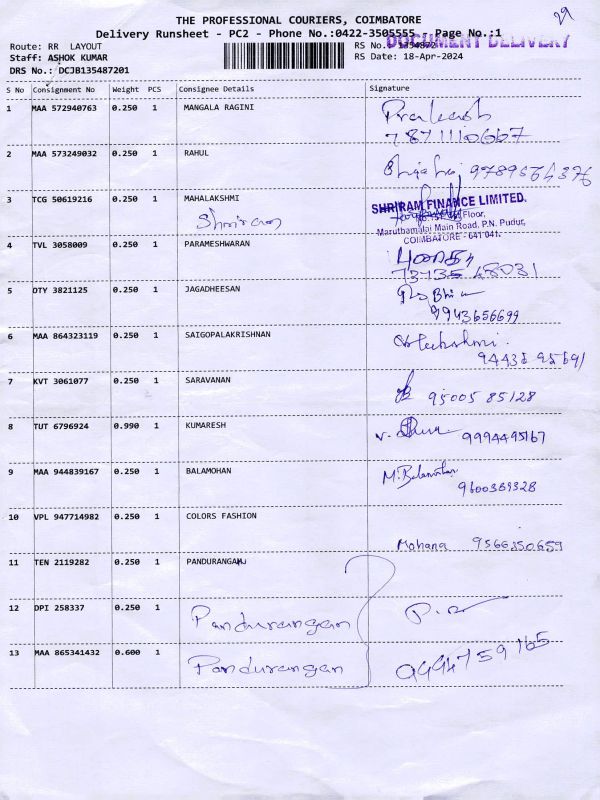 29
THE PROFESSIONAL COURIERS, COIMBATORE
Delivery Runsheet - PC2 - Phone No.:0422-3505555 Page No.:1
DOCUMENT DELIVERY
Route: RR LAYOUT RS No.: 1354872
Staff: ASHOK KUMAR RS Date: 18-Apr-2024
DRS No.: DCJB135487201
S No Consignment No Weight PCS Consignee Details Signature
1 MAA 572940763 0.250 1 MANGALA RAGINI Prakash
7871110667
2 MAA 573249032 0.250 1 RAHUL
9789564376
3 TCG 50619216 0.250 1 MAHALAKSHMI
Shriram
SHRIRAM FINANCE LIMITED.
Floor,
Maruthamalai Main Road, P.N. Pudur,
COIMBATORE - 641 041.
4 TVL 3058009 0.250 1 PARAMESHWARAN
73735 48031
5 DTY 3821125 0.250 1 JAGADHEESAN
9943656699
6 MAA 864323119 0.250 1 SAIGOPALAKRISHNAN
94435 95691
7 KVT 3061077 0.250 1 SARAVANAN
95005 85128
8 TUT 6796924 0.990 1 KUMARESH
9994495167
9 MAA 944839167 0.250 1 BALAMOHAN M. Balamohan
9600369328
10 VPL 947714982 0.250 1 COLORS FASHION
Mohana 9566350659
11 TEN 2119282 0.250 1 PANDURANGAN
12 DPI 258337 0.250 1 Pandurangan
13 MAA 865341432 0.600 1 Pandurangan 9994759165